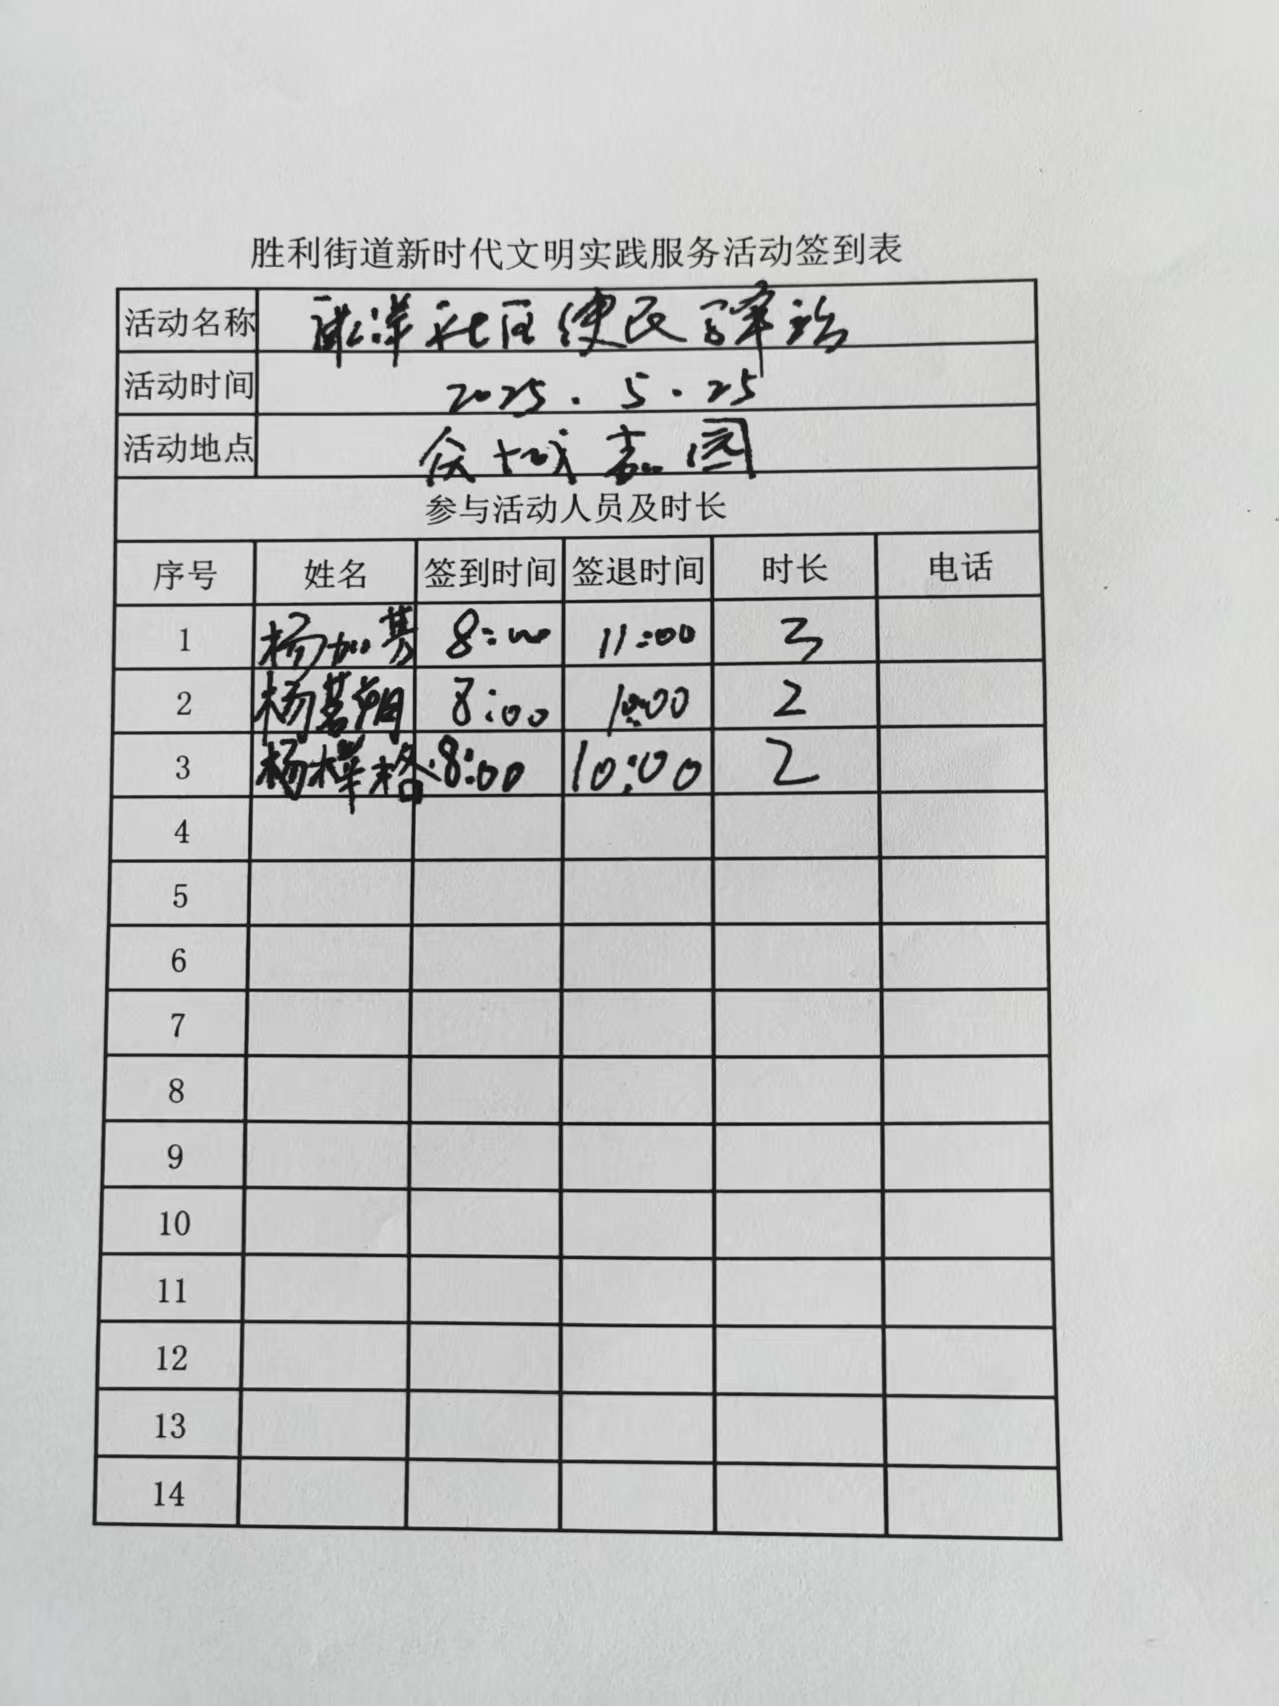 胜利街道新时代文明实践服务活动签到表
活动名称 社区便民
活动时间 2025.5.25
活动地点 城嘉园
参与活动人员及时长
序号 姓名 签到时间 签退时间 时长 电话
1 杨加 8:00 11:00 3
2 杨 8:00 10:00 2
3 杨樺格 8:00 10:00 2
4
5
6
7
8
9
10
11
12
13
14